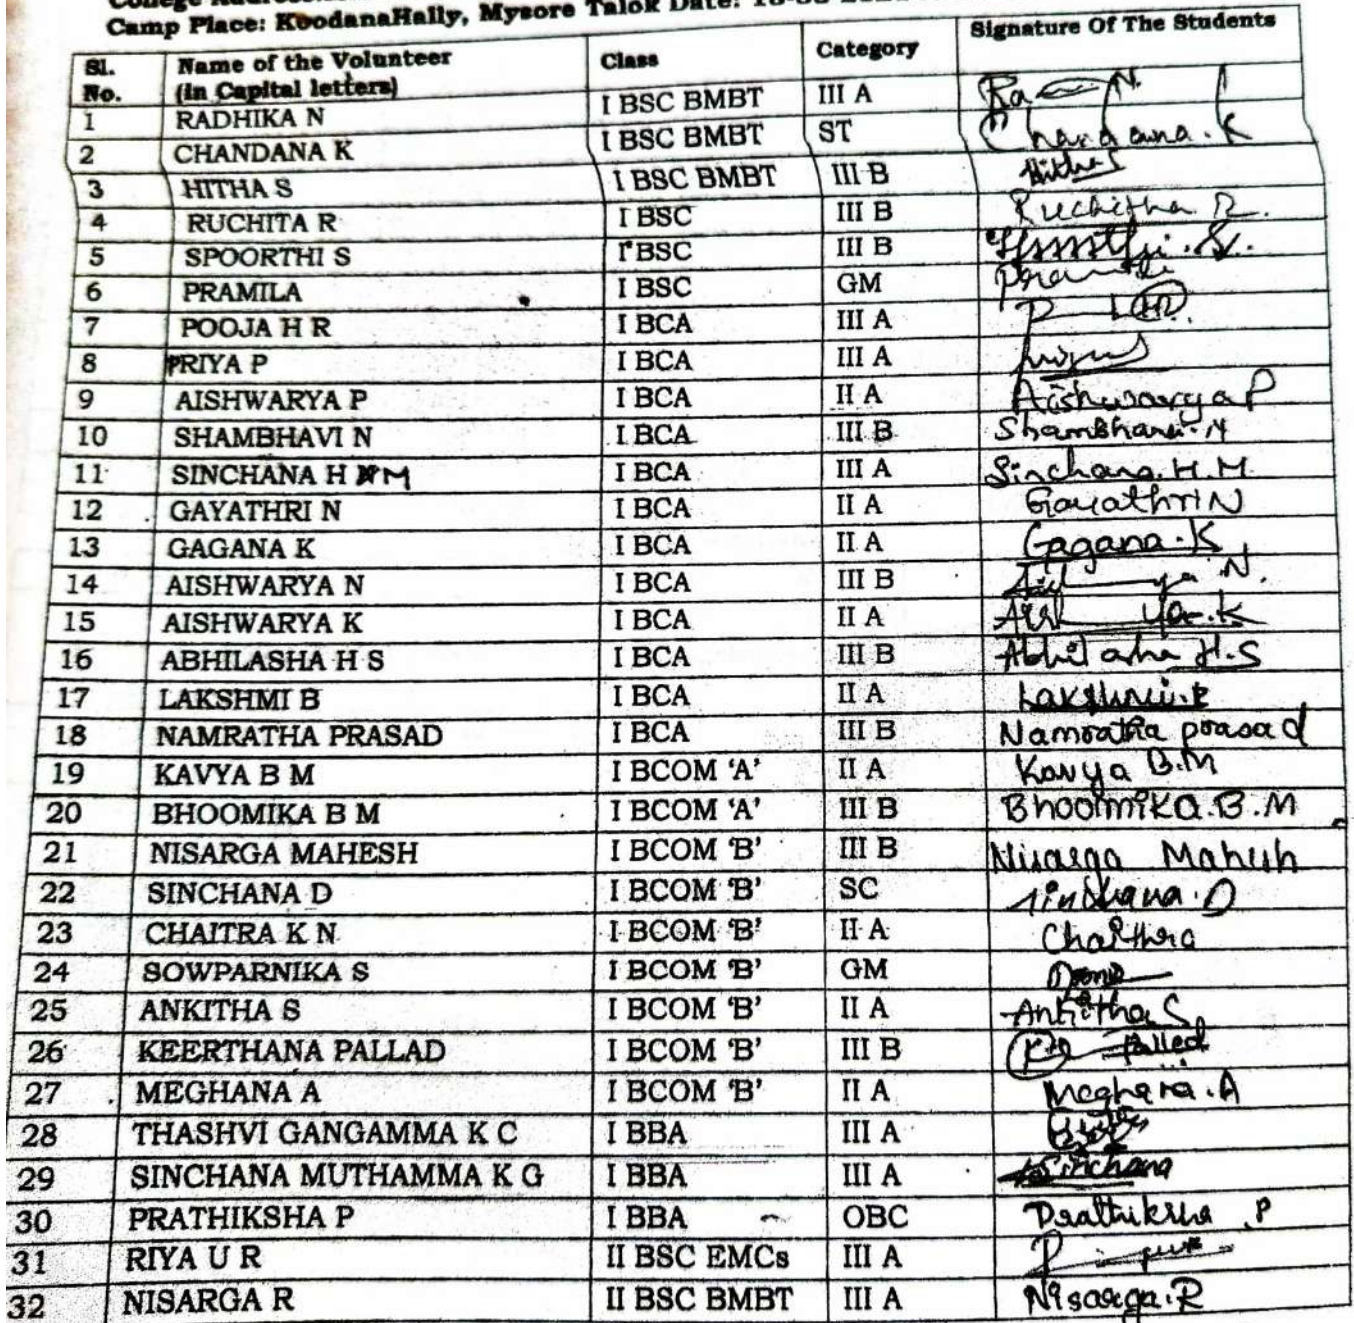 Camp Place: KoodanaHally, Mysore Talok Date:
Sl. No. Name of the Volunteer (in Capital letters) Class Category Signature Of The Students
1 RADHIKA N I BSC BMBT III A
2 CHANDANA K I BSC BMBT ST Chandana.K
3 HITHA S I BSC BMBT III B Hitha S
4 RUCHITA R I BSC III B Ruchitha R.
5 SPOORTHI S I BSC III B
6 PRAMILA I BSC GM
7 POOJA H R I BCA III A
8 PRIYA P I BCA III A
9 AISHWARYA P I BCA II A Aishwarya P
10 SHAMBHAVI N I BCA III B Shambhavi.N
11 SINCHANA H M I BCA III A Sinchana.H.M
12 GAYATHRI N I BCA II A Gayathri N
13 GAGANA K I BCA II A Gagana.K
14 AISHWARYA N I BCA III B
15 AISHWARYA K I BCA II A
16 ABHILASHA H S I BCA III B Abhilasha H.S
17 LAKSHMI B I BCA II A Lakshmi.B
18 NAMRATHA PRASAD I BCA III B Namratha prasad
19 KAVYA B M I BCOM 'A' II A Kavya B.M
20 BHOOMIKA B M I BCOM 'A' III B Bhoomika.B.M
21 NISARGA MAHESH I BCOM 'B' III B Nisarga Mahesh
22 SINCHANA D I BCOM 'B' SC Sinchana.D
23 CHAITRA K N I BCOM 'B' II A Chaithra
24 SOWPARNIKA S I BCOM 'B' GM
25 ANKITHA S I BCOM 'B' II A Ankitha S
26 KEERTHANA PALLAD I BCOM 'B' III B Palled
27 MEGHANA A I BCOM 'B' II A Meghana.A
28 THASHVI GANGAMMA K C I BBA III A
29 SINCHANA MUTHAMMA K G I BBA III A Sinchana
30 PRATHIKSHA P I BBA OBC Prathiksha P
31 RIYA U R II BSC EMCs III A
32 NISARGA R II BSC BMBT III A Nisarga.R